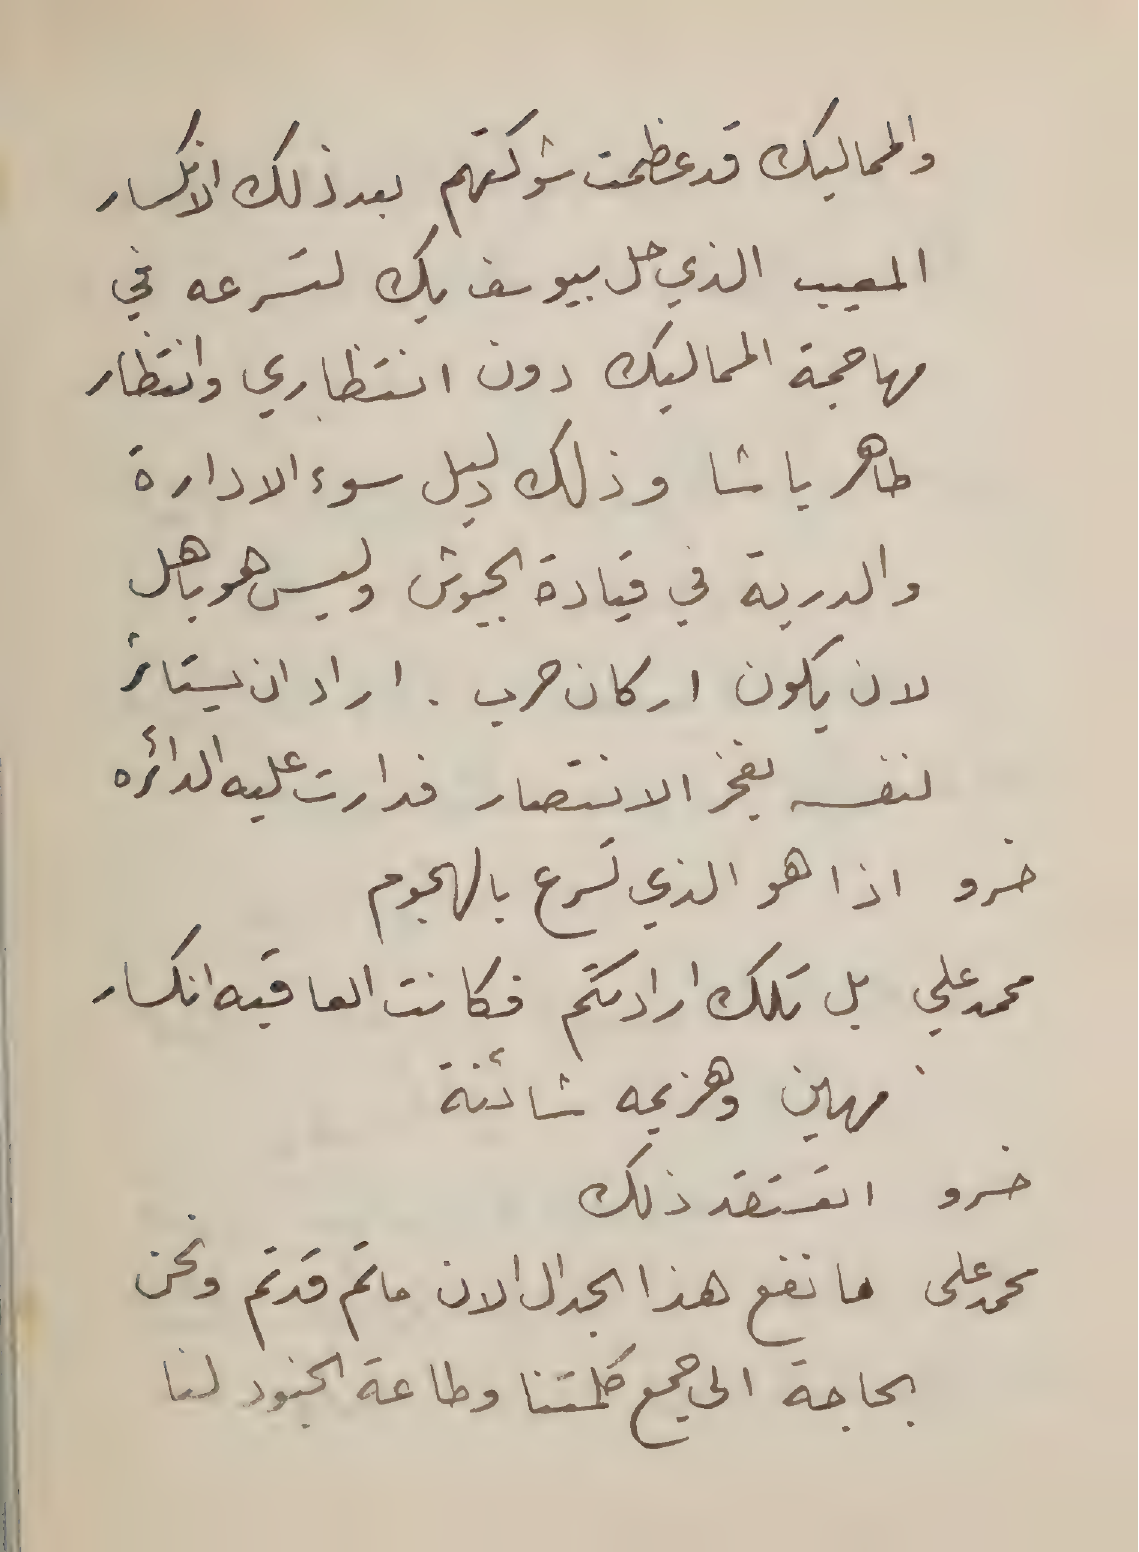 والمماليك قد عظمت شوكتهم بعد ذلك الانكسار
المعيب الذي حل بيوسف بك لتسرعه في
مهاجمة المماليك دون انتظاري وانتظار
طاهر باشا وذلك دليل سوء الادارة
والدربة في قيادة الجيوش وليس هو باهل
لان يكون اركان حرب . اراد ان يستاثر
لنفسه بفخر الانتصار فدارت عليه الدائره
خسرو اذا هو الذي تسرع بالهجوم
محمد علي بل تلك ارادتكم فكانت العاقبه انكسار
مهين وهزيمه شائنة
خسرو اتعتقد ذلك
محمد على ما نفع هذا الجدال الان ماتم قد تم ونحن
بحاجة الى جمع كلمتنا وطاعة الجنود لنا